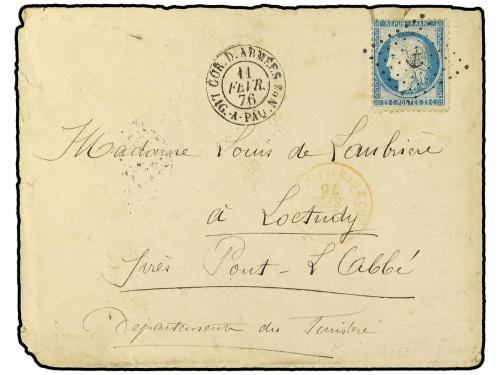 REPUB. FRANC.
25 C. POSTES 25 C.
COR. D. ARMÉES
11
FEVR.
76
LIG. A. PAQ. Nº3
Madame Louis de Laubrière
à Loctudy
près Pont-L'Abbé
Département du Finistère